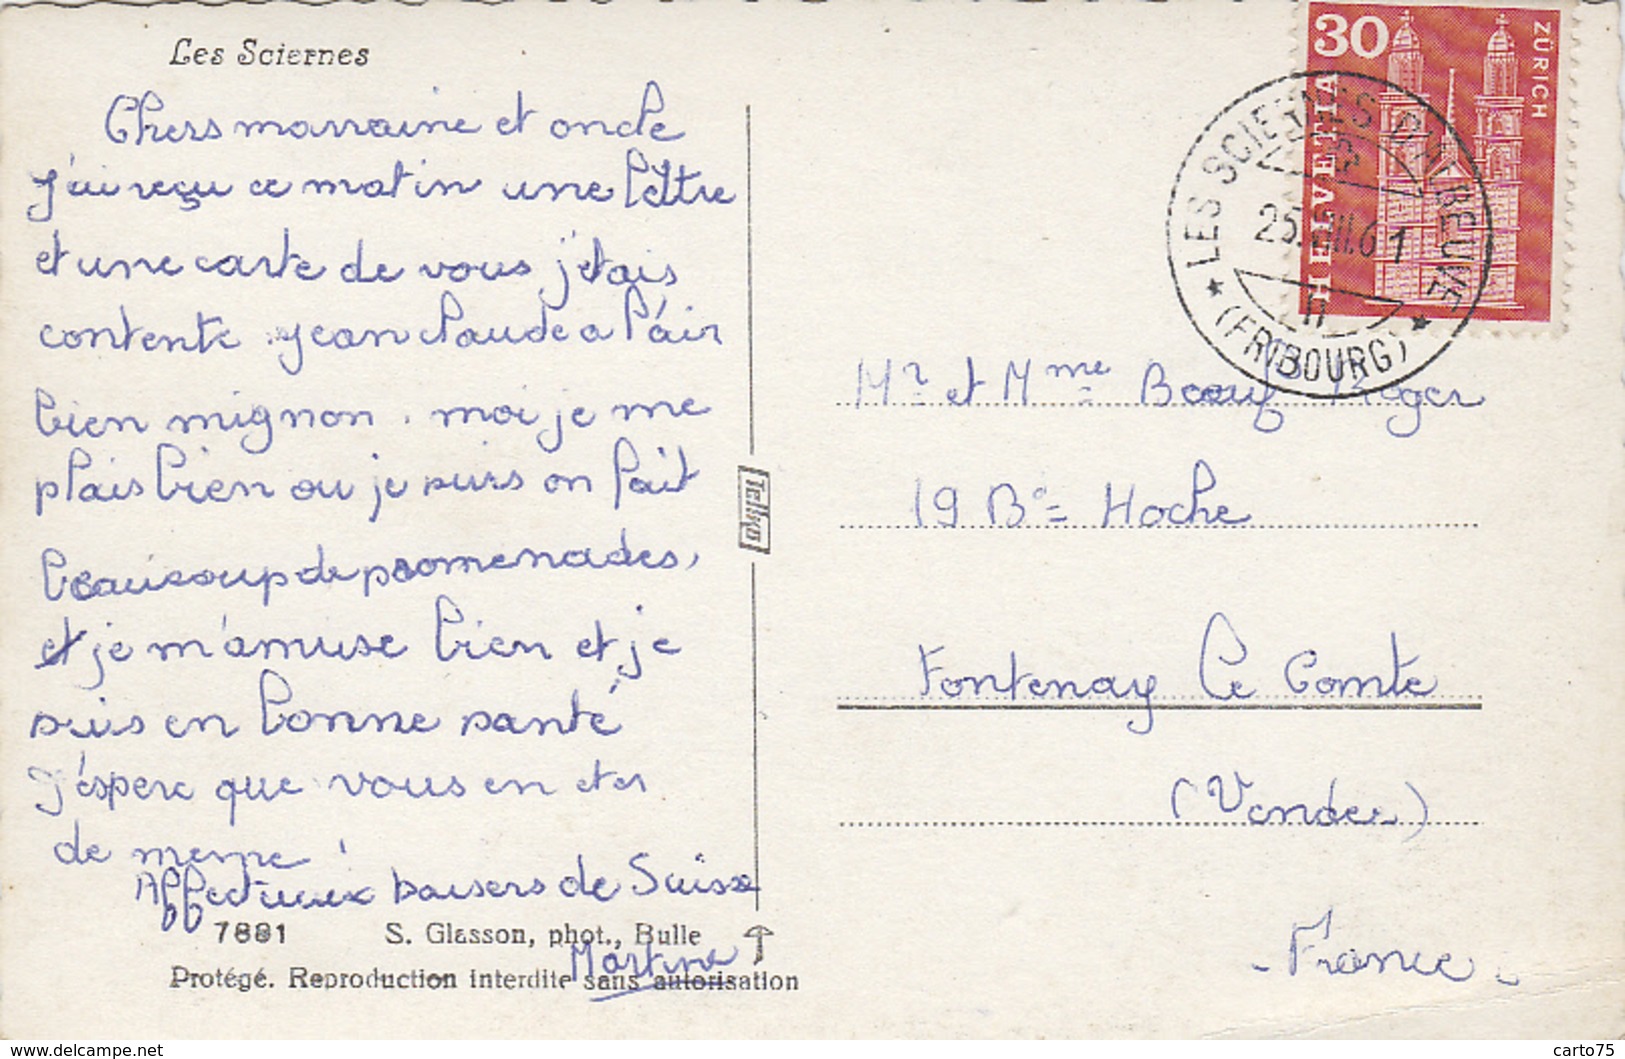 Les Sciernes
Chers marraine et oncle
j'ai reçu ce matin une lettre
et une carte de vous j'étais
contente. Jean claude a l'air
bien mignon. moi je me
plais bien ou je suis on fait
beaucoup de promenades,
et je m'amuse bien et je
suis en bonne santé
J'éspere que vous en etes
de meme!
Affectueux baisers de Suisse
Martine
7881 S. Glasson, phot., Bulle
Protégé. Reproduction interdite sans autorisation
Telko
30
HELVETIA
ZÜRICH
LES SCIERNES D'ALBEUVE
25.VIII.61
(FRIBOURG)
Mr et Mme Roger
19 Bd Hoche
Fontenay Le Comte
(Vendee)
- France -
www.delcampe.net
carto75